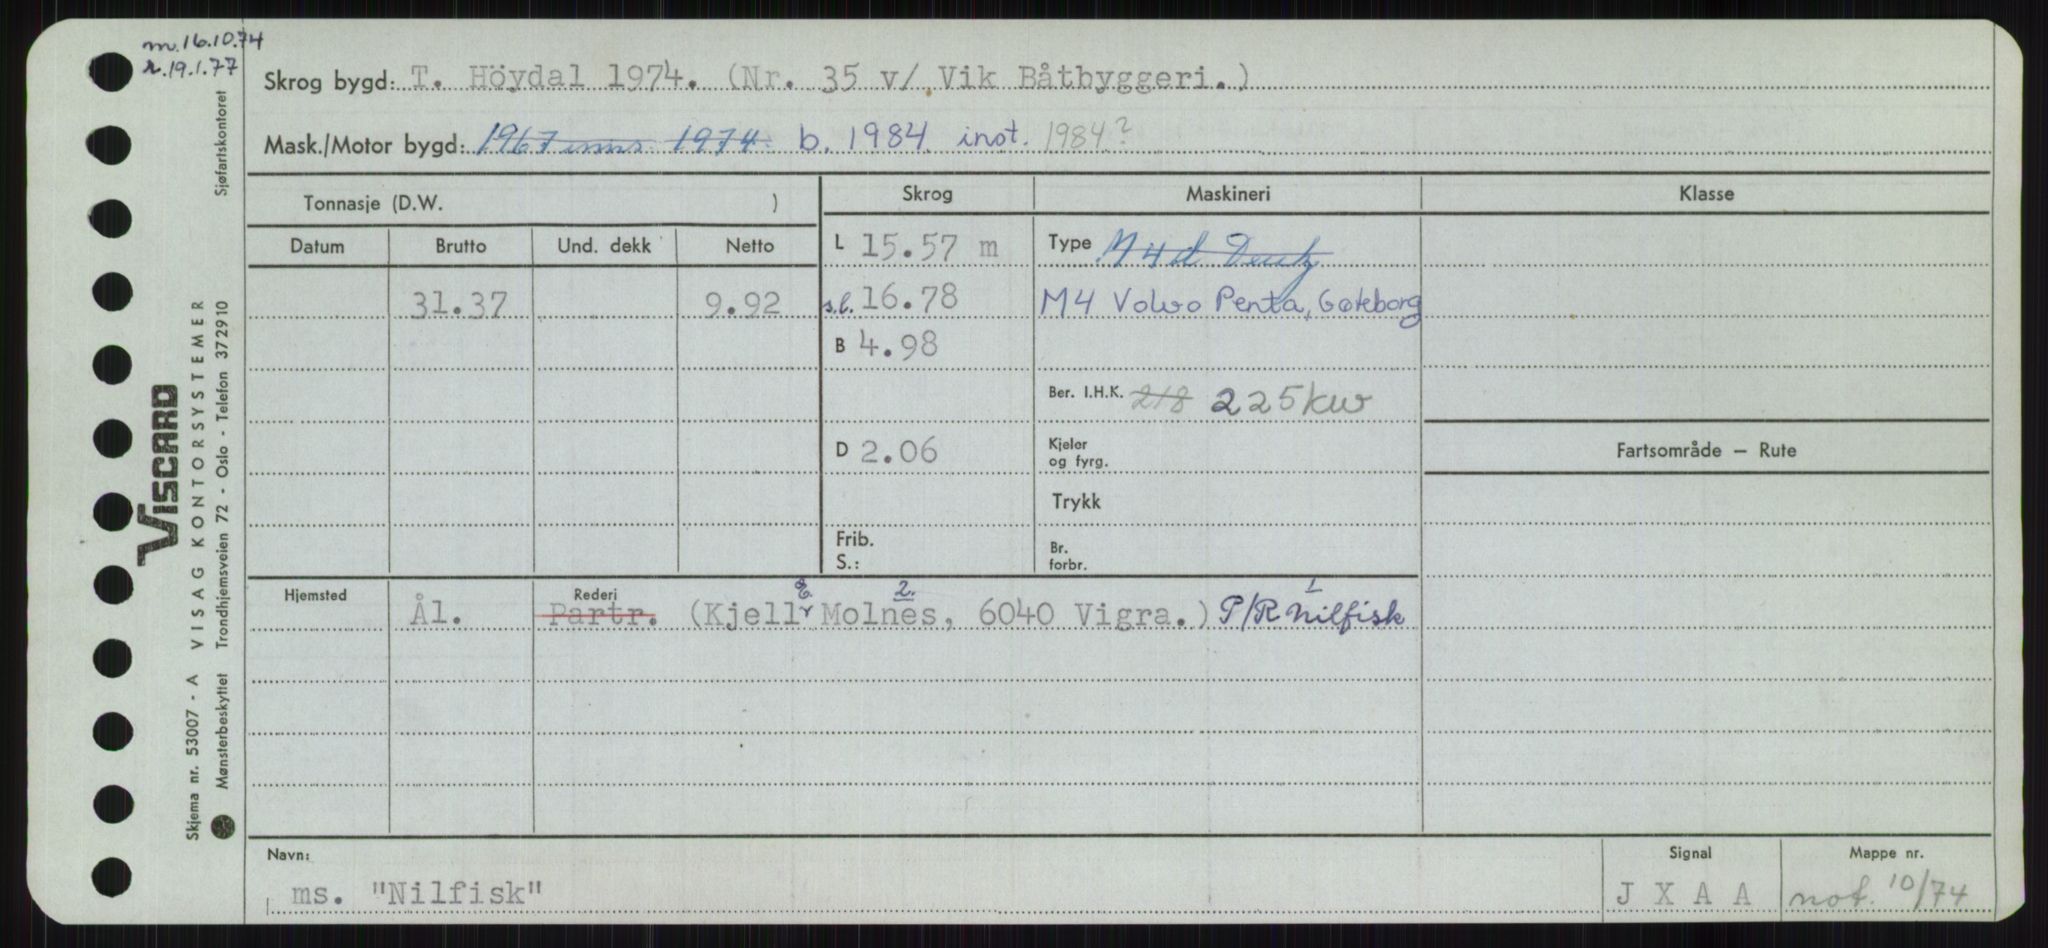 m. 16.10.74
r. 19.1.77
Skrog bygd: T. Höydal 1974. (Nr. 35 v/ Vik Båtbyggeri.)
Mask./Motor bygd: 1967 inns. 1974. b. 1984 inst. 1984?
Tonnasje (D.W. )
Skrog
Maskineri
Klasse
Datum Brutto Und. dekk Netto
L 15.57 m
Type M4d Deutz
31.37 9.92
s.l. 16.78
M4 Volvo Penta, Gøteborg
B 4.98
Ber. I.H.K. 218 225 kw
D 2.06
Kjeler
og fyrg.
Fartsområde – Rute
Trykk
Frib.
S.:
Br.
forbr.
Hjemsted
Rederi
Ål. Partr. (Kjell E. Molnes, 6040 Vigra.) P/R Nilfisk
2.
1
Navn:
ms. "Nilfisk"
Signal
J X A A
Mappe nr.
not. 10/74
Viscard
VISAG KONTORSYSTEMER
Skjema nr. 53007 - A
Mønsterbeskyttet
Trondhjemsveien 72 - Oslo - Telefon 372910
Sjøfartskontoret